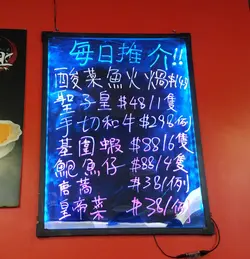 每日推介!!
酸菜魚火鍋$148
聖子皇 $48/1隻
手切和牛 $298/例
基圍蝦 $88/6隻
鯇魚仔 $88/4隻
唐蒿 $38/例
皇帝菜 $38/例